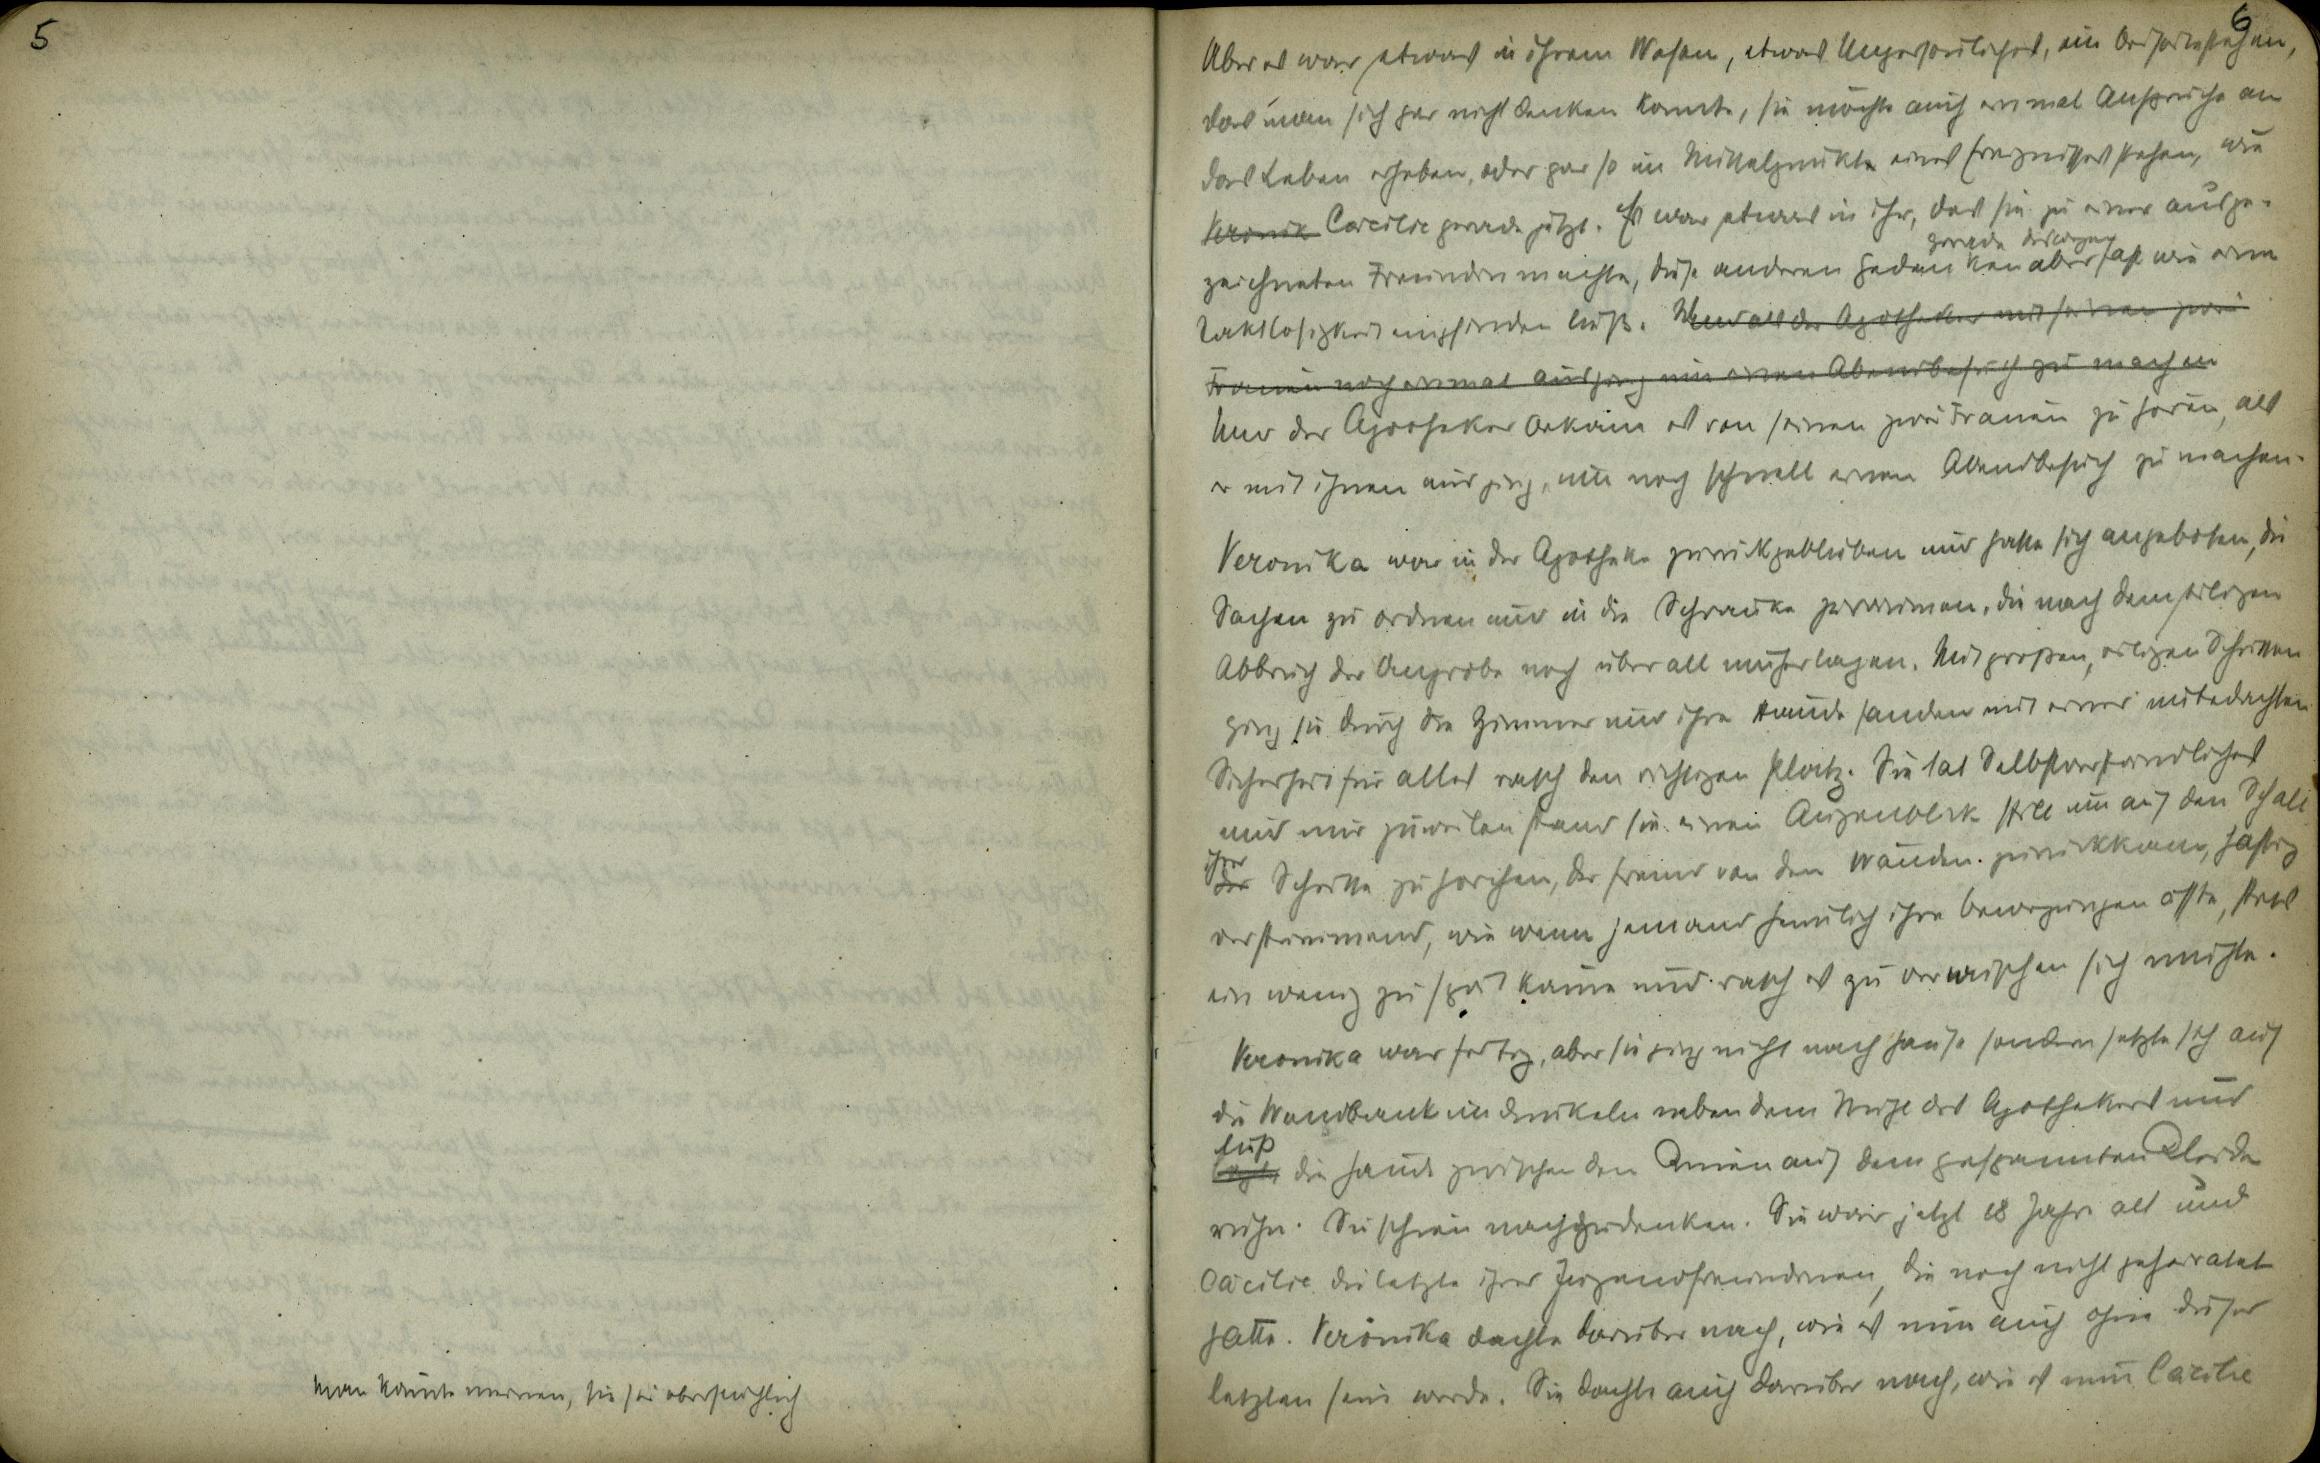 5
Man könnte meinen, sie sei oberflächlich
6
Aber es war etwas in ihrem Wesen, etwas Unpersönliches, ein Beiseitestehen,
das man sich gar nicht denken konnte, sie möchte auch einmal Ansprüche an
das Leben erheben, oder gar so im Mittelpunkte eines Ereignisses stehen, wie
Veronik Cäcilie gerade jetzt. Es war etwas in ihr, das sie zu einer ausge-
gerade deswegen
zeichneten Freundin machte, diese anderen Gedanken aber fast wie eine
Taktlosigkeit empfinden ließ. Und als der Apotheker mit seinen zwei
Frauen noch einmal ausging um einen Abendbesuch zu machen
Nur der Apotheker bekam es von seinen zwei Frauen zu hören, als
er mit ihnen ausging, um noch schnell einen Abendbesuch zu machen.
Veronika war in der Apotheke zurückgeblieben und hatte sich angeboten, die
Sachen zu ordnen und in die Schränke zu räumen, die nach dem eiligen
Abbruch der Anprobe noch überall umherlagen. Mit großen, eiligen Schritten
ging sie durch die Zimmer und ihre Hände fanden mit einer unbedachten
Sicherheit für alles rasch den richtigen Platz. Sie tat Selbstverständliches
und nur zuweilen stand sie einen Augenblick still um auf den Schall
ihrer
der Schritte zu horchen, der fremd von den Wänden zurückkam, hastig
verstummend, wie wenn jemand heimlich ihre Bewegungen äffte, stets
ein wenig zu spät käme und rasch es zu verwischen sich mühte.
Veronika war fertig, aber sie ging nicht nach Hause sondern setzte sich auf
die Wandbank im dunkeln neben dem Sitze des Apothekers und
ließ
legte die Hände zwischen den Knien auf dem gespannten Kleide
ruhn. Sie schien nachzudenken. Sie war jetzt 28 Jahre alt und
Cäcilie die letzte ihrer Jugendfreundinnen, die noch nicht geheiratet
hatte. Veronika dachte darüber nach, wie es nun auch ohne dieser
letzten sein werde. Sie dachte auch darüber nach, wie es nun Cäcilie